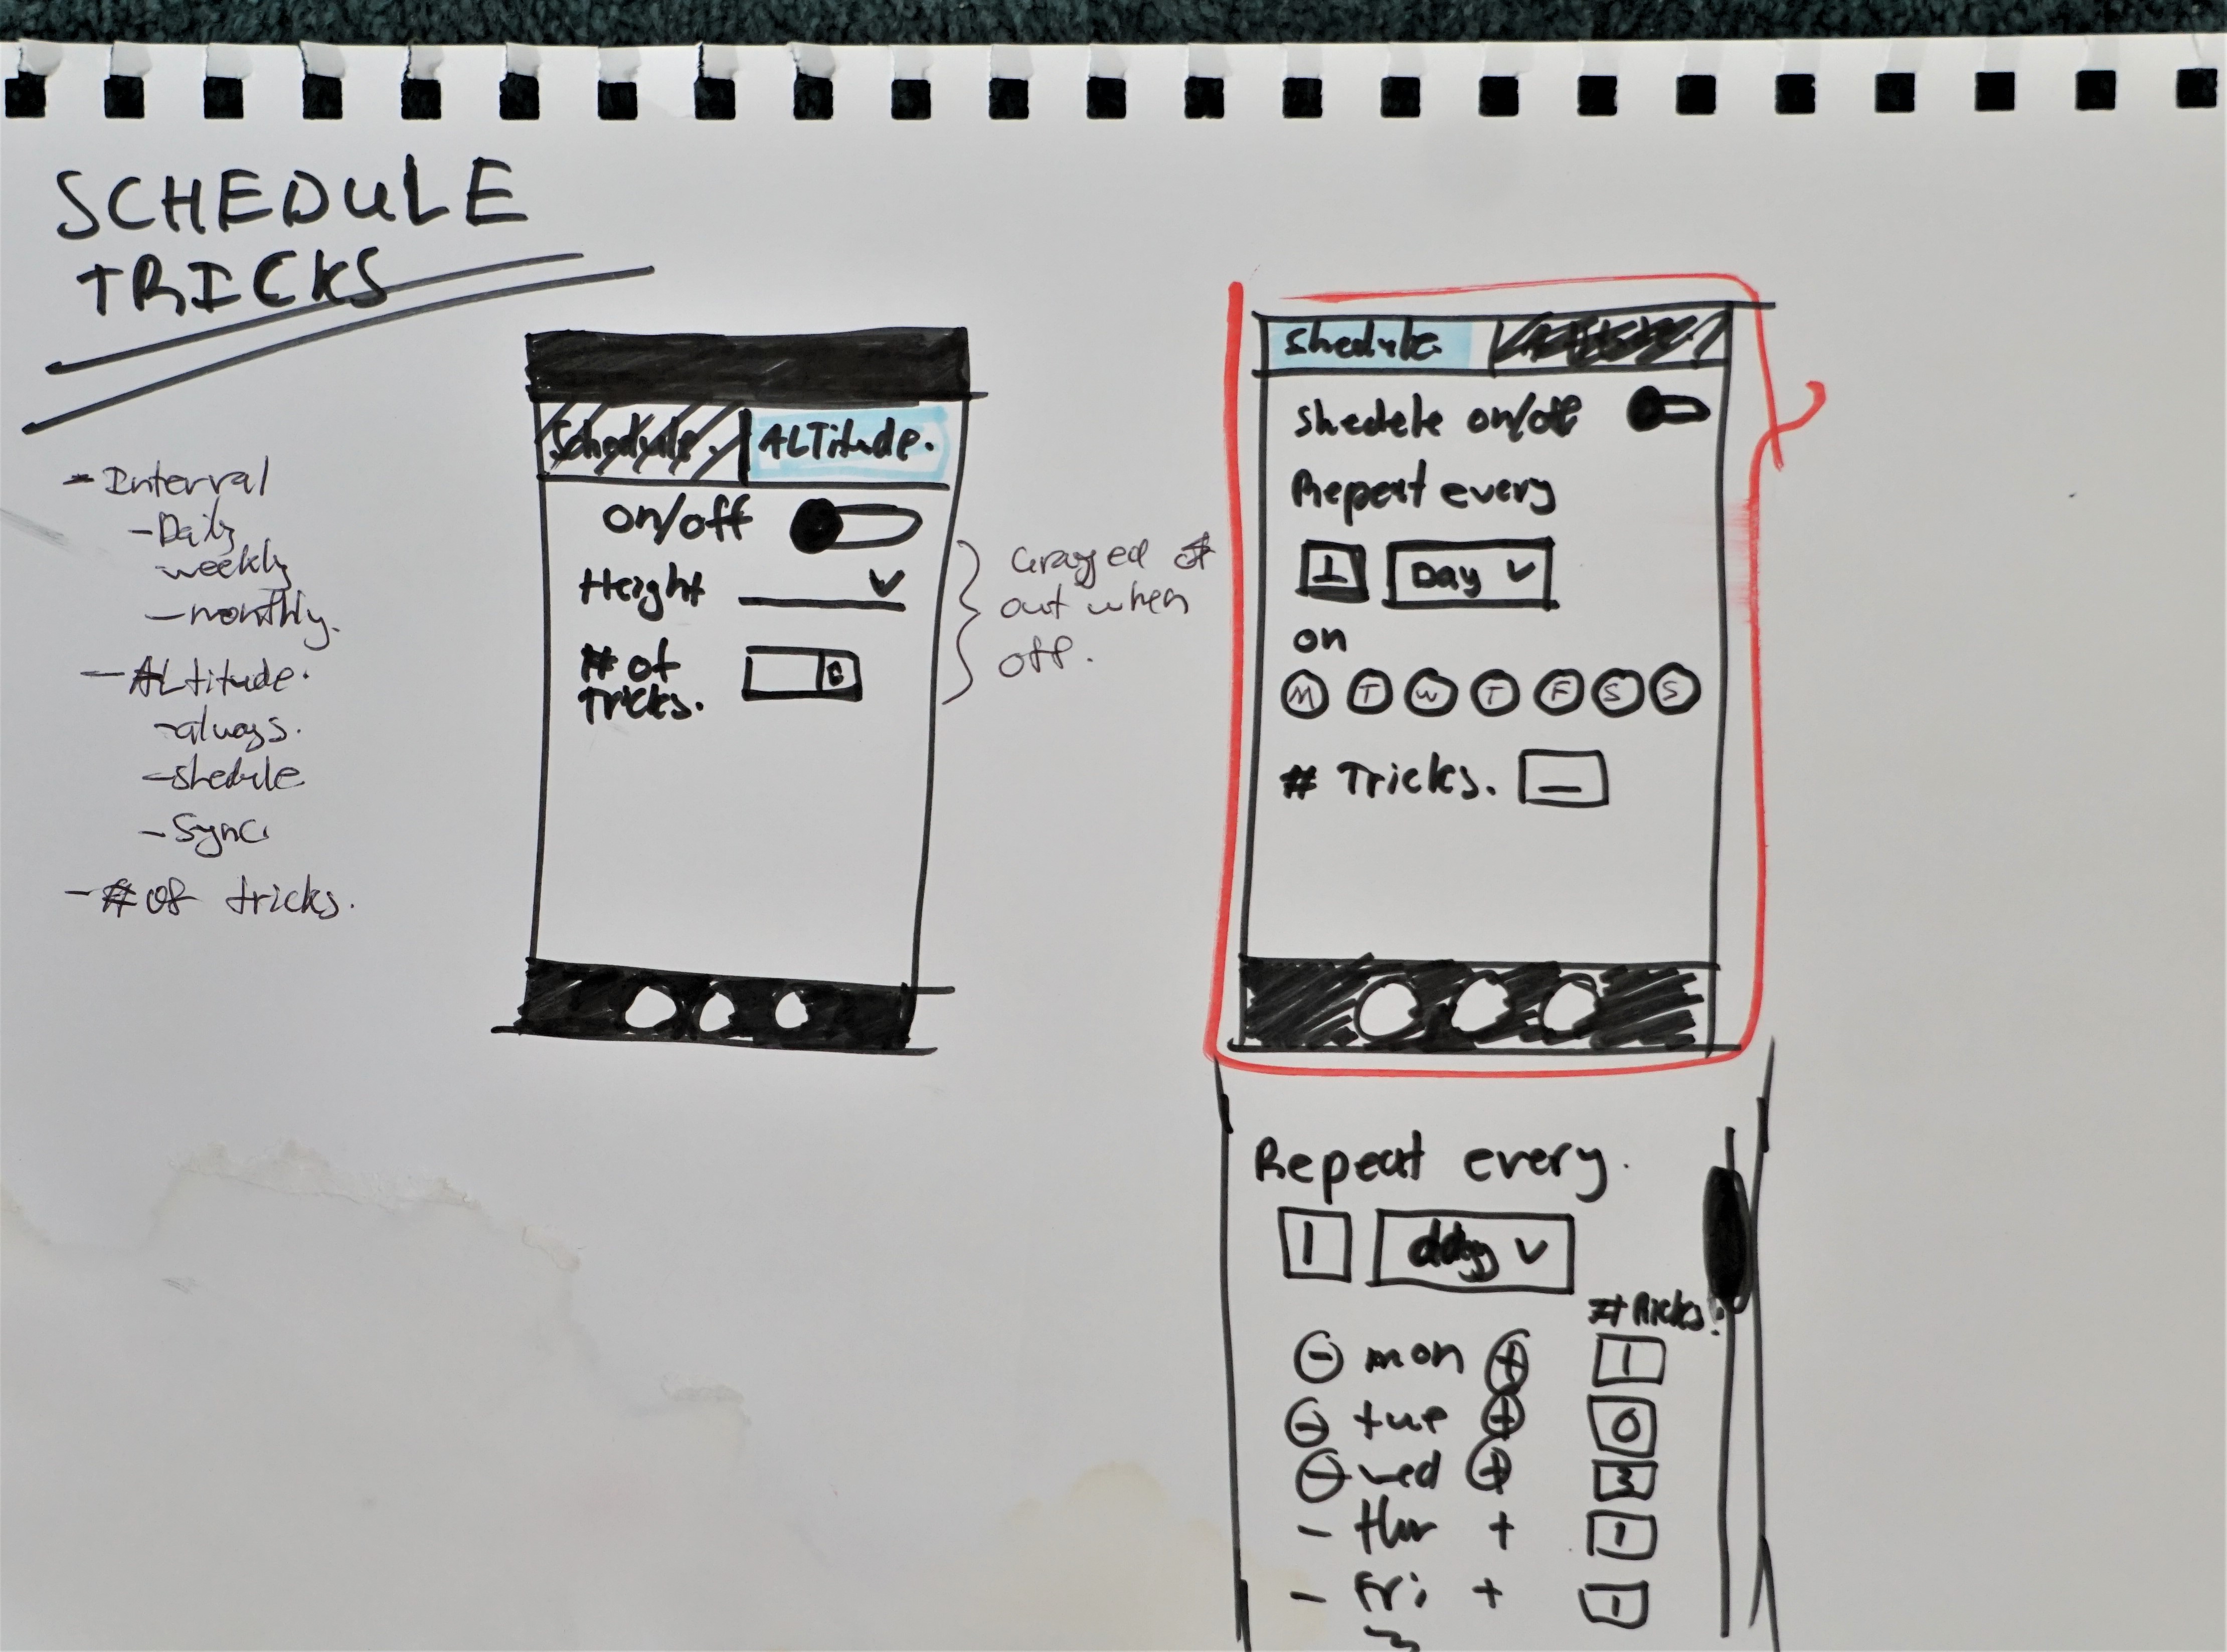 SCHEDULE
TRICKS
- Interval
- Daily
weekly
- monthly.
- ALtitude.
- always.
- shedule
- Sync
- # of tricks.
Schedule.
ALTitude.
on/off
Height
# of
tricks.
Grayed
out when
off.
Shedule
Shedele on/off
Repeat every
1 Day
on
M T W T F S S
# Tricks.
Repeat every.
1 day
# Ricks.
- mon + 1
- tue + 0
- wed + 3
- thur + 1
- Fri + -